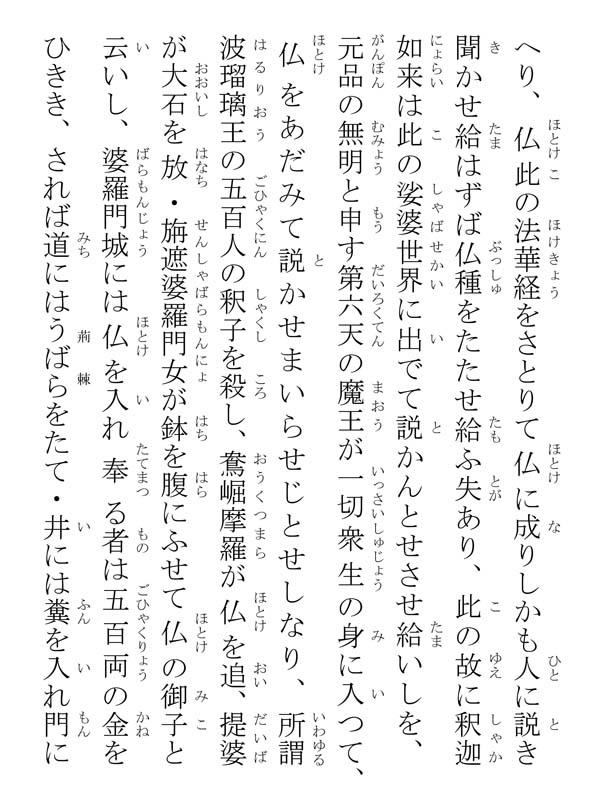 へり、仏此の法華経をさとりて仏に成りしかも人に説き
聞かせ給はずば仏種をたたせ給ふ失あり、此の故に釈迦
如来は此の娑婆世界に出でて説かんとせさせ給いしを、
元品の無明と申す第六天の魔王が一切衆生の身に入つて、
仏をあだみて説かせまいらせじとせしなり、所謂
波瑠璃王の五百人の釈子を殺し、鴦崛摩羅が仏を追、提婆
が大石を放・旃遮婆羅門女が鉢を腹にふせて仏の御子と
云いし、婆羅門城には仏を入れ奉る者は五百両の金を
ひきき、されば道にはうばらをたて・井には糞を入れ門に